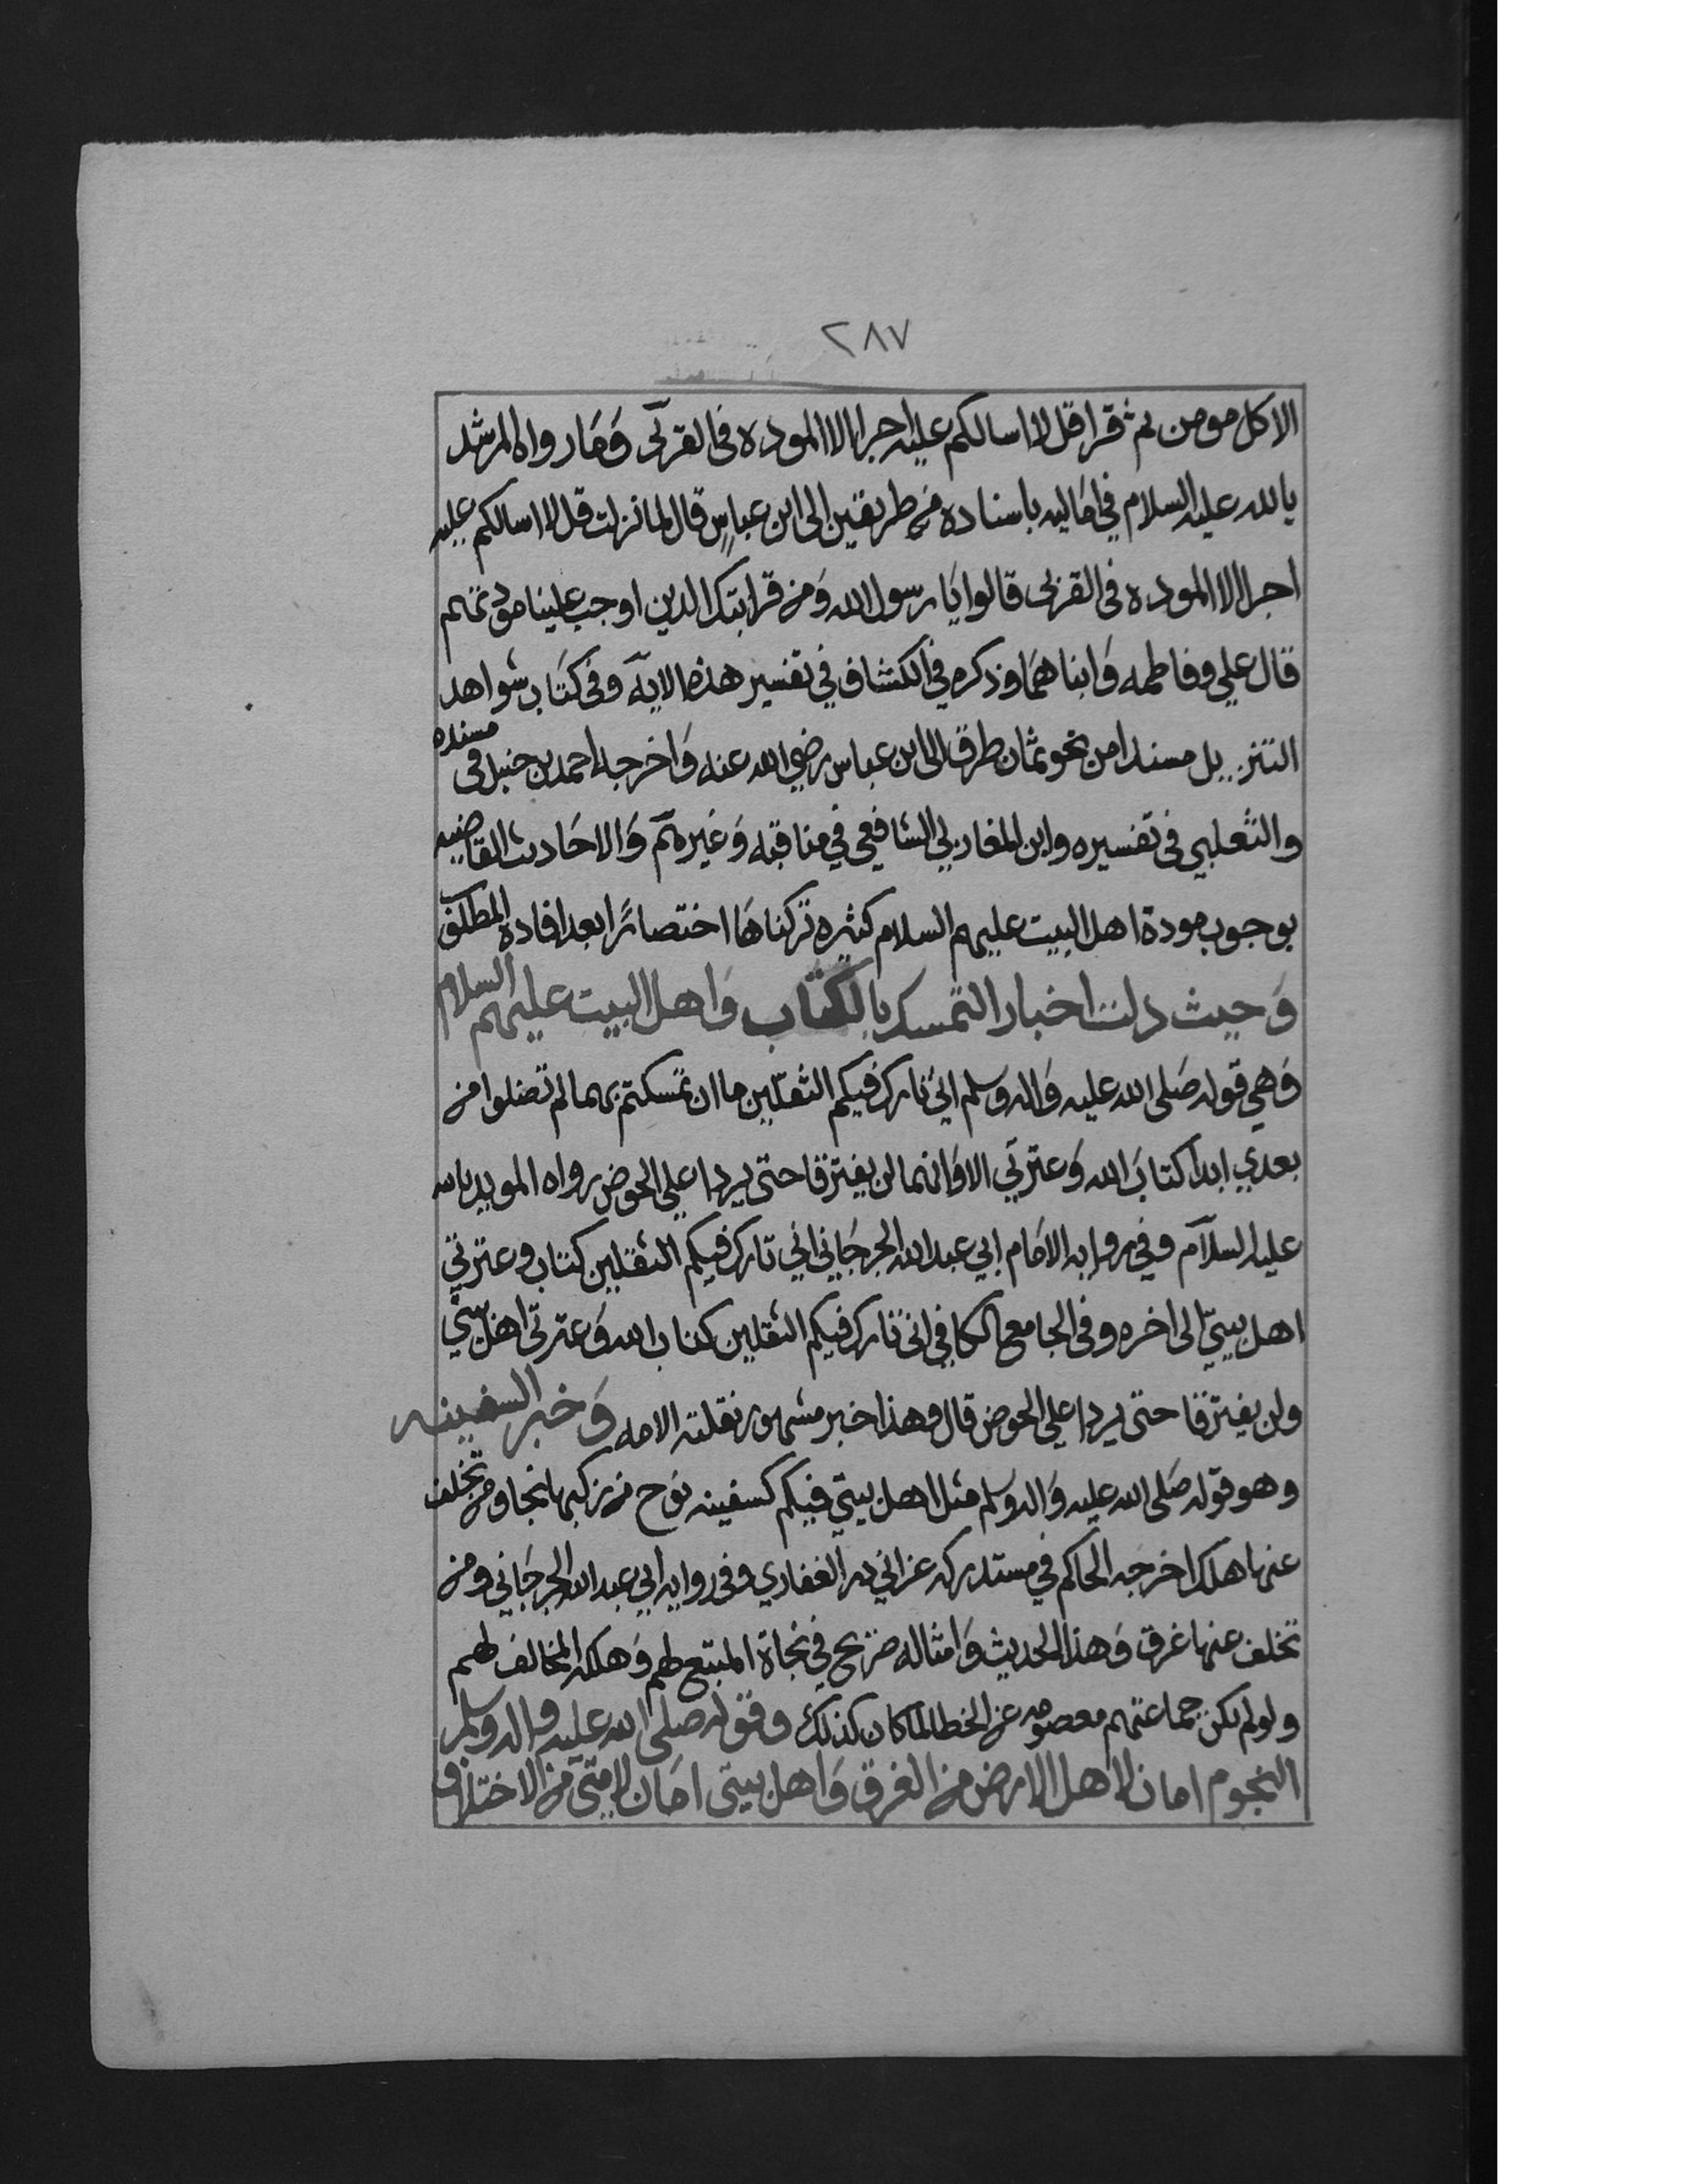 ٢٨٧
الا كل مومن ثم قرا قل لا اسالكم عليه اجرا الا الموده في القربى وَمَا رواه المرشد
بالله عليه السلام في اماليه باسناده من طريقين الى ابن عباس قال لما نزلت قل لا اسالكم عليه
اجرا الا الموده في القربى قالوا يَا رسول الله وَمن قرابتك الذين اوجب علينا مودتهم
قال علي وفاطمه وَابناهمَا وذكره في الكشاف في تفسير هذه الايه وفي كتَاب شواهد
التنزيل مسندا من نحو ثمان طرق الى ابن عباس رضي الله عنه وَاخرجه احمد بن حنبل في مسنده
والثعلبي في تفسيره وابن المغازلي الشافعي في مناقبه وَغيرهم وَالاحَاديث القاضيه
بوجوب مودة اهل البيت عليهم السلام كثيره تركناهَا اختصارًا بعد افادة المطلق
وَحيث دلت اخبار التمسك بالكتاب وَاهل البيت عليهم السلام
وَهي قوله صَلى الله عليه وَاله وسلم اني تارك فيكم الثقلين ما ان تمسكتم بهما لم تضلوا من
بعدي ابدا كتابَ الله وَعترتي الا وَانهما لن يفترقا حتى يردا علي الحوض رواه المويد بالله
عليه السلام وفي روايه الامَام ابي عبد الله الجرجَاني اني تارك فيكم الثقلين كتاب وعترتي
اهل بيتي الى اخره وفي الجامع الكافي اني تارك فيكم الثقلين كتاب الله وَعترتي اهل بيتي
ولن يفترقا حتى يردا علي الحوض قال وهذا خبر مشهور نقلته الامه وَخبر السفينه
وهو قوله صَلى الله عليه وَاله وسلم مثل اهل بيتي فيكم كسفينه نوح من ركبها نجا ومن تخلف
عنها هلك اخرجه الحاكم في مستدركه عن ابي ذر الغفاري وفي روايه ابي عبد الله الجرجَاني ومن
تخلف عنها غرق وَهذا الحديث وَامثاله صريح في نجاة المتبع لهم وَهلكه المخالف لهم
ولو لم تكن جماعتهم معصومه عن الخطا لما كان كذلك وقوله صلى الله عليه واله وسلم
النجوم امان لاهل الارض من الغرق وَاهل بيتي امَان لامتي من الاختلاف